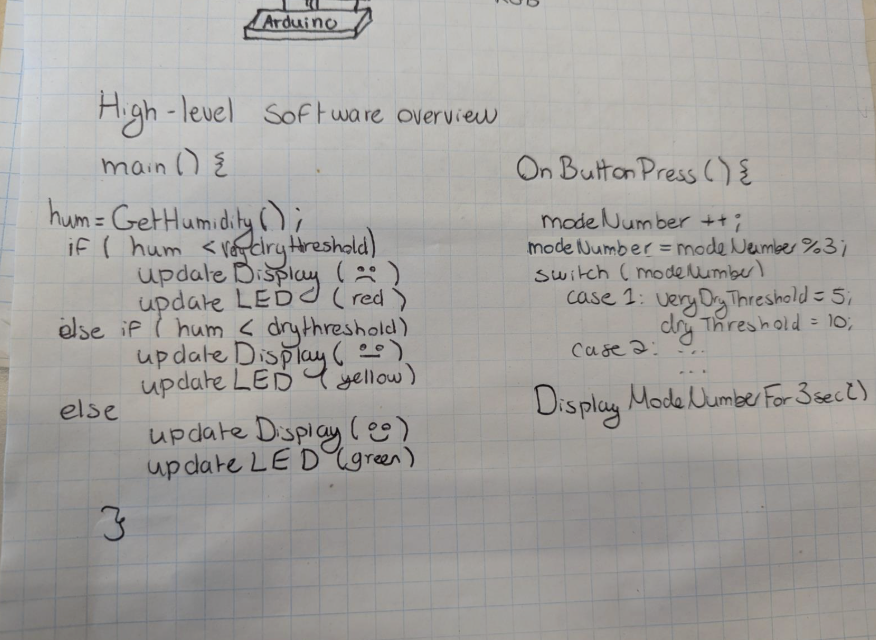 Arduino
High-level software overview
main() {
hum = GetHumidity();
if ( hum < verydrythreshold)
update Display (☹)
update LED (red)
else if ( hum < drythreshold)
update Display (😐)
update LED (yellow)
else
update Display (☺)
update LED (green)
}
OnButtonPress() {
modeNumber ++;
modeNumber = modeNumber %3;
switch (modeNumber)
case 1: veryDryThreshold = 5;
dryThreshold = 10;
case 2: ...
...
DisplayModeNumberFor3sec()